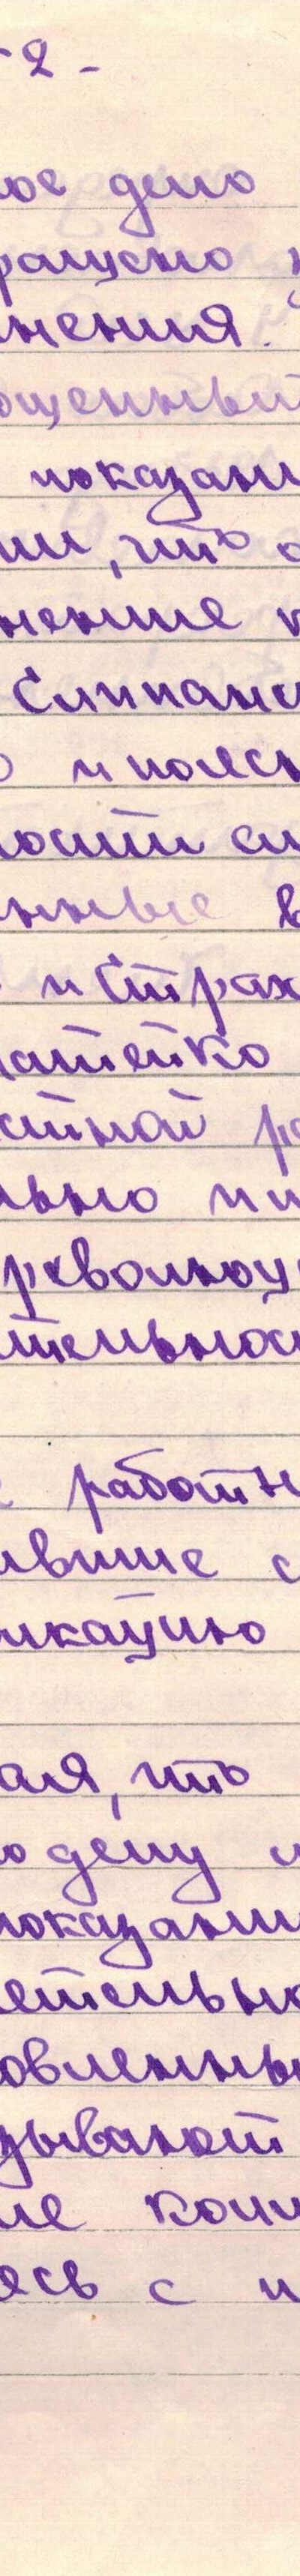 - 2 -
ое дело
ращено
нения.
ощенный
показани
ии, что о
нение к
Слипани
о и поясн
ности си
нные в
и Страх
латейко
стной ра
льно ни
революци
ительнос
работн
ившие с
ликацию
ая, что
о делу и
показани
етельно
овленны
зывают
ие кон
ясь с и